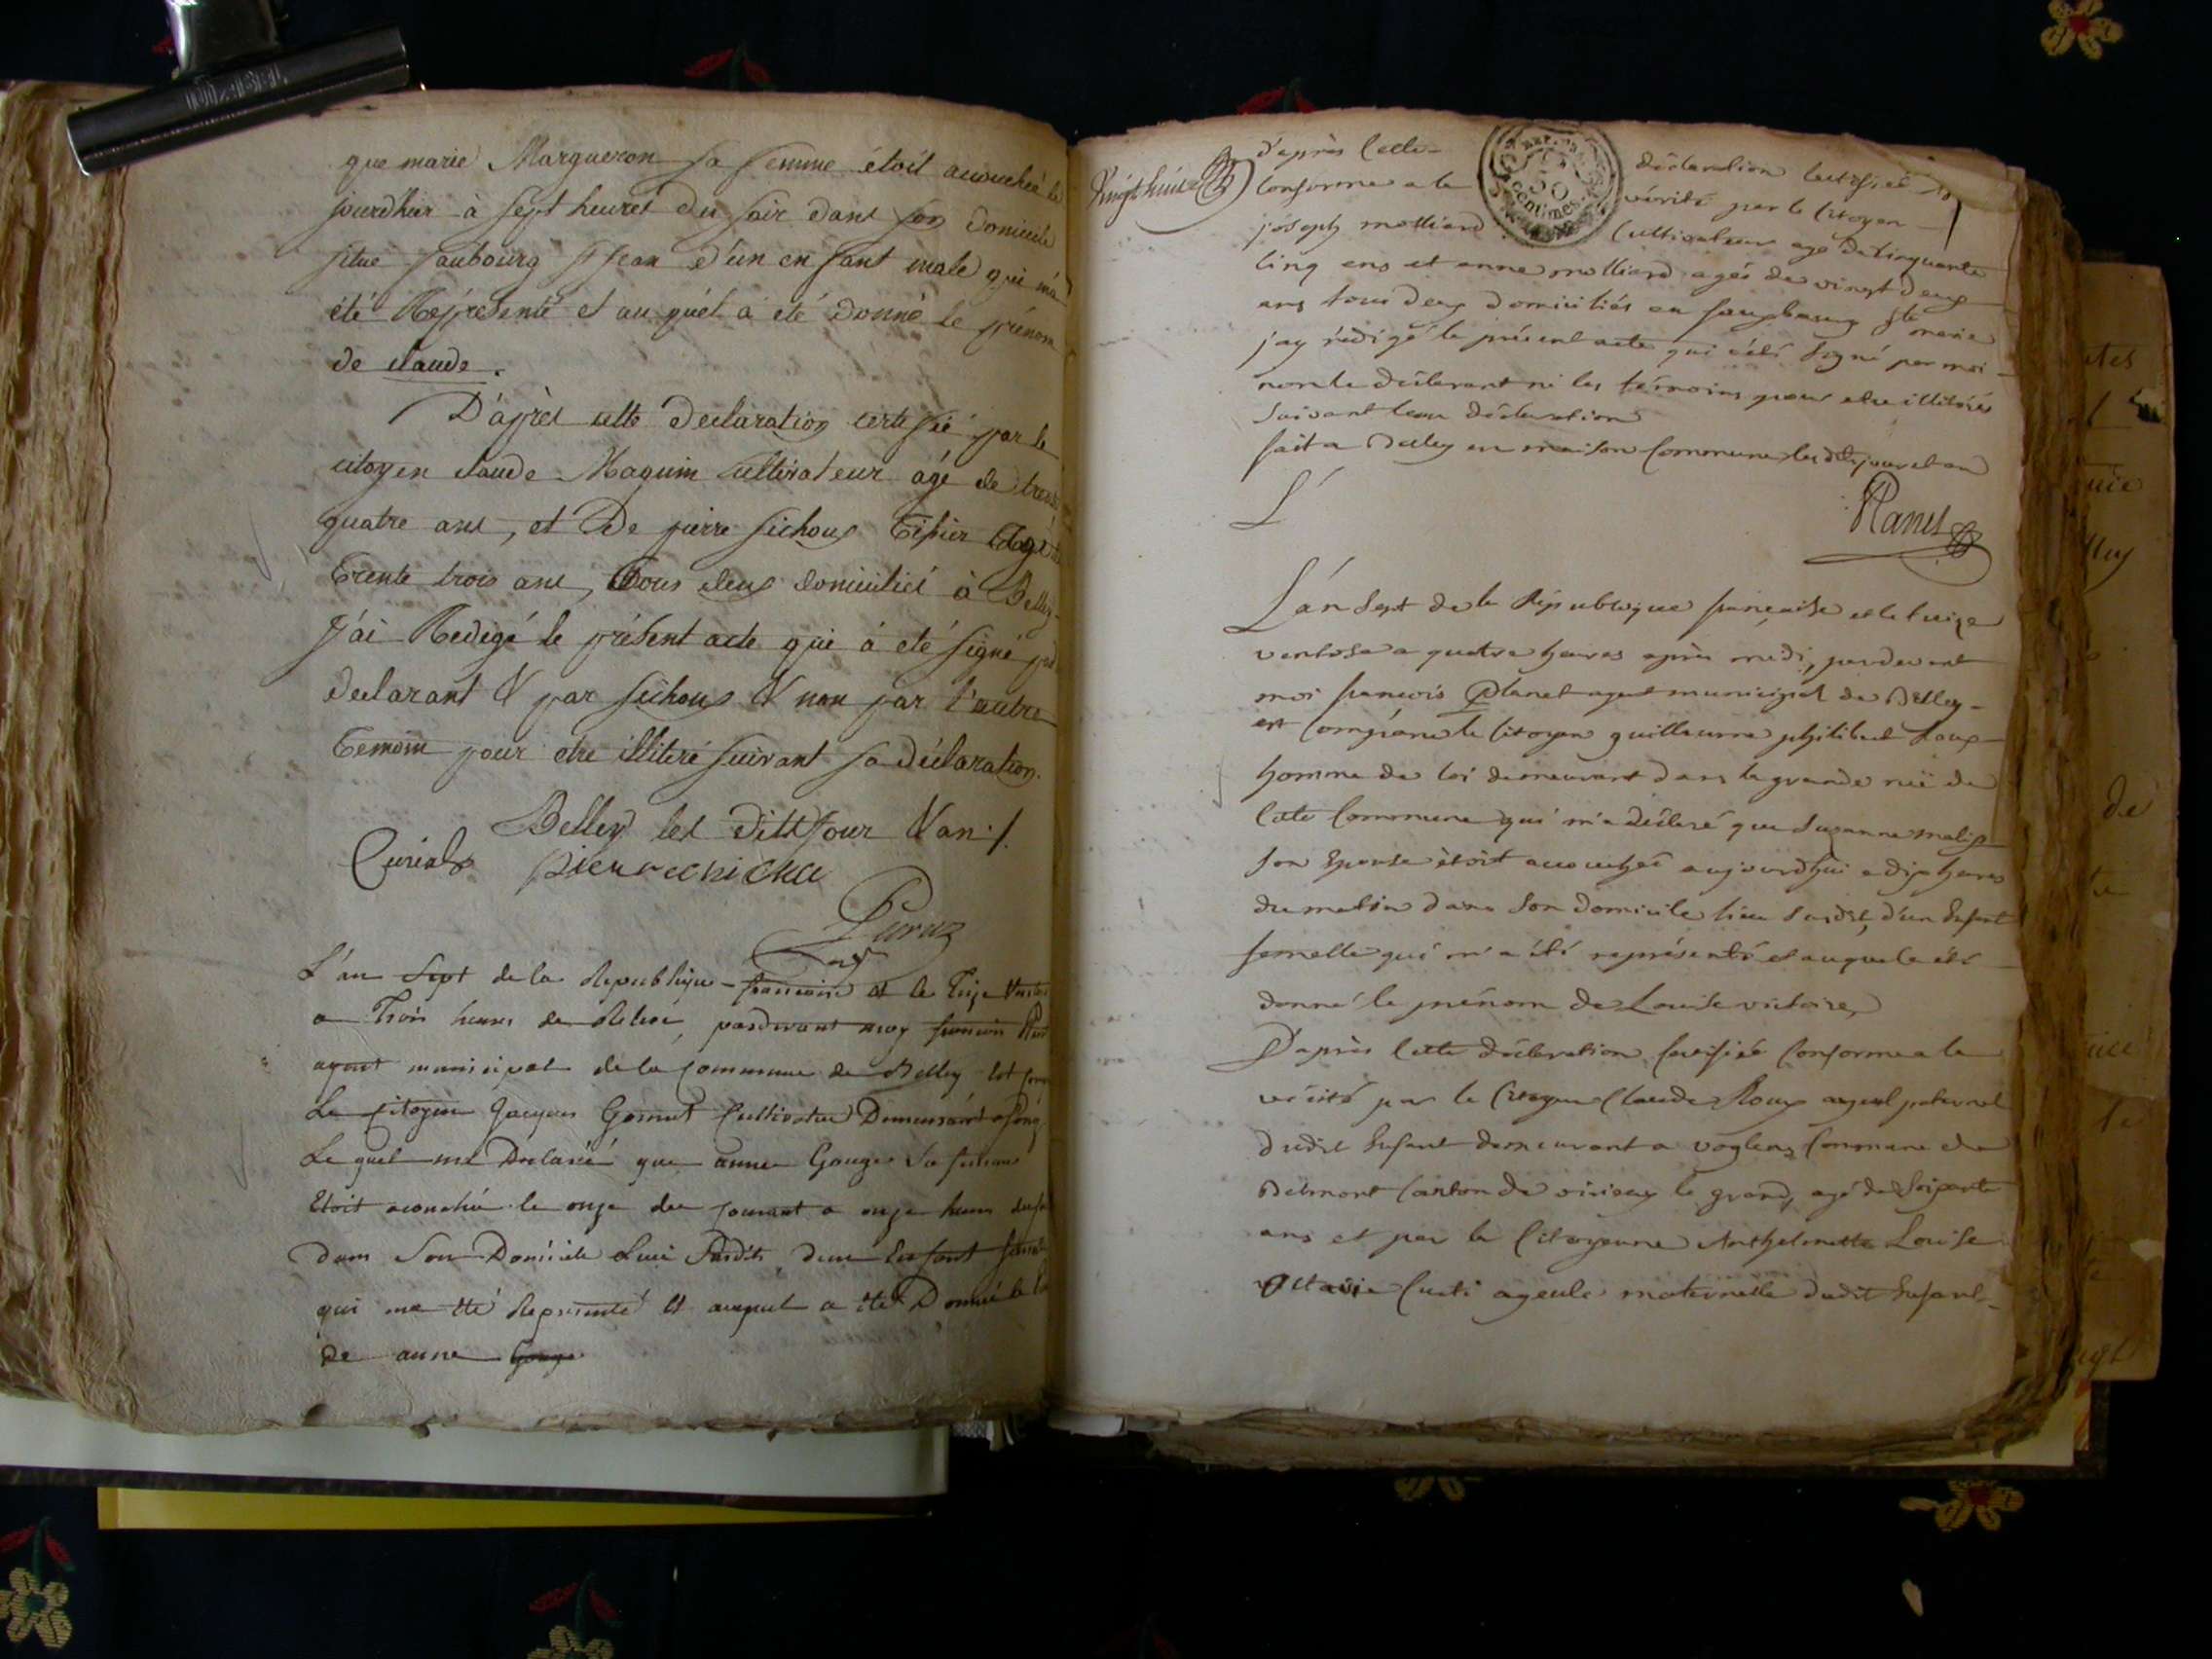 que marie Margueron sa femme étoit accouchée le
jourd'hier à sept heures du soir dans son domicile
situé faubourg St Jean d'un enfant male qui m'a
été Représenté et au quel a été donné le prénom
de claude.
D'après cette Declaration certifié par le
citoyen claude Maquin cultivateur agé de trente
quatre ans, et De pierre sichoux Tisier agé
trente trois ans, Tous deux domiciliés à Belley
J'ai Redigé le présent acte qui a été signé
declarant & par sichoux & non par l'autre
Temoin pour etre illiteré suivant sa déclaration.
Belley les dits Jour & an ./.
L'an Sept de la Republique francoise et le Treize
a Trois heures de Relevé, pardevant moy francois
agent municipal de la commune de Belley
Le Citoyen Jacques Gonnet Cultivateur Demeurant
Le quel ma Déclaré que anne Gouge sa femme
Etoit acouchée le onze du courant a onze heures
dans Son Domicile Lieu Susdits, dun Enfant
qui ma été Representé et auquel a été Donné le
de anne Gouge
vingt huit
d'après cette declaration certifiée
REP. FRA.
50
centimes
conforme a la vérité par le Citoyen
joseph molliard Cultivateur agé de cinquante
cinq ans et anne molliard agée de vingt deux
ans tous deux domiciliés au fauxbourg ste marie
j'ay rédigé le présent acte qui a été signé par moi
non le déclarant ni les témoins pour etre illitérés
suivant leur déclaration
fait a Belley en maison Commune les dits jour et an
L'
Planet
L'an sept de la République française et le treize
ventose a quatre heures après midi, pardevant
moi francois Planet agent municipal de Belley
est comparu le citoyen guillaume philibert Roux
homme de loi demeurant dans la grande rüe de
cette Commune qui m'a déclaré que Suzanne
son Epouse étoit accouchée aujourdhui a dix heures
du matin dans son domicile lieu susdit, d'un Enfant
femelle qui m'a été représenté et auquel a été
donné le prénom de Louise victoire,
D'après cette déclaration certifiée conforme a la
vérité par le Citoyen Claude Roux ayeul paternel
dudit Enfant demeurant a voglens Commune de
Belmont Canton de virieux le grand, agé de soixante
ans et par la Citoyenne Anthelmette Louise
Octavie Cuti ayeule maternelle dudit Enfant